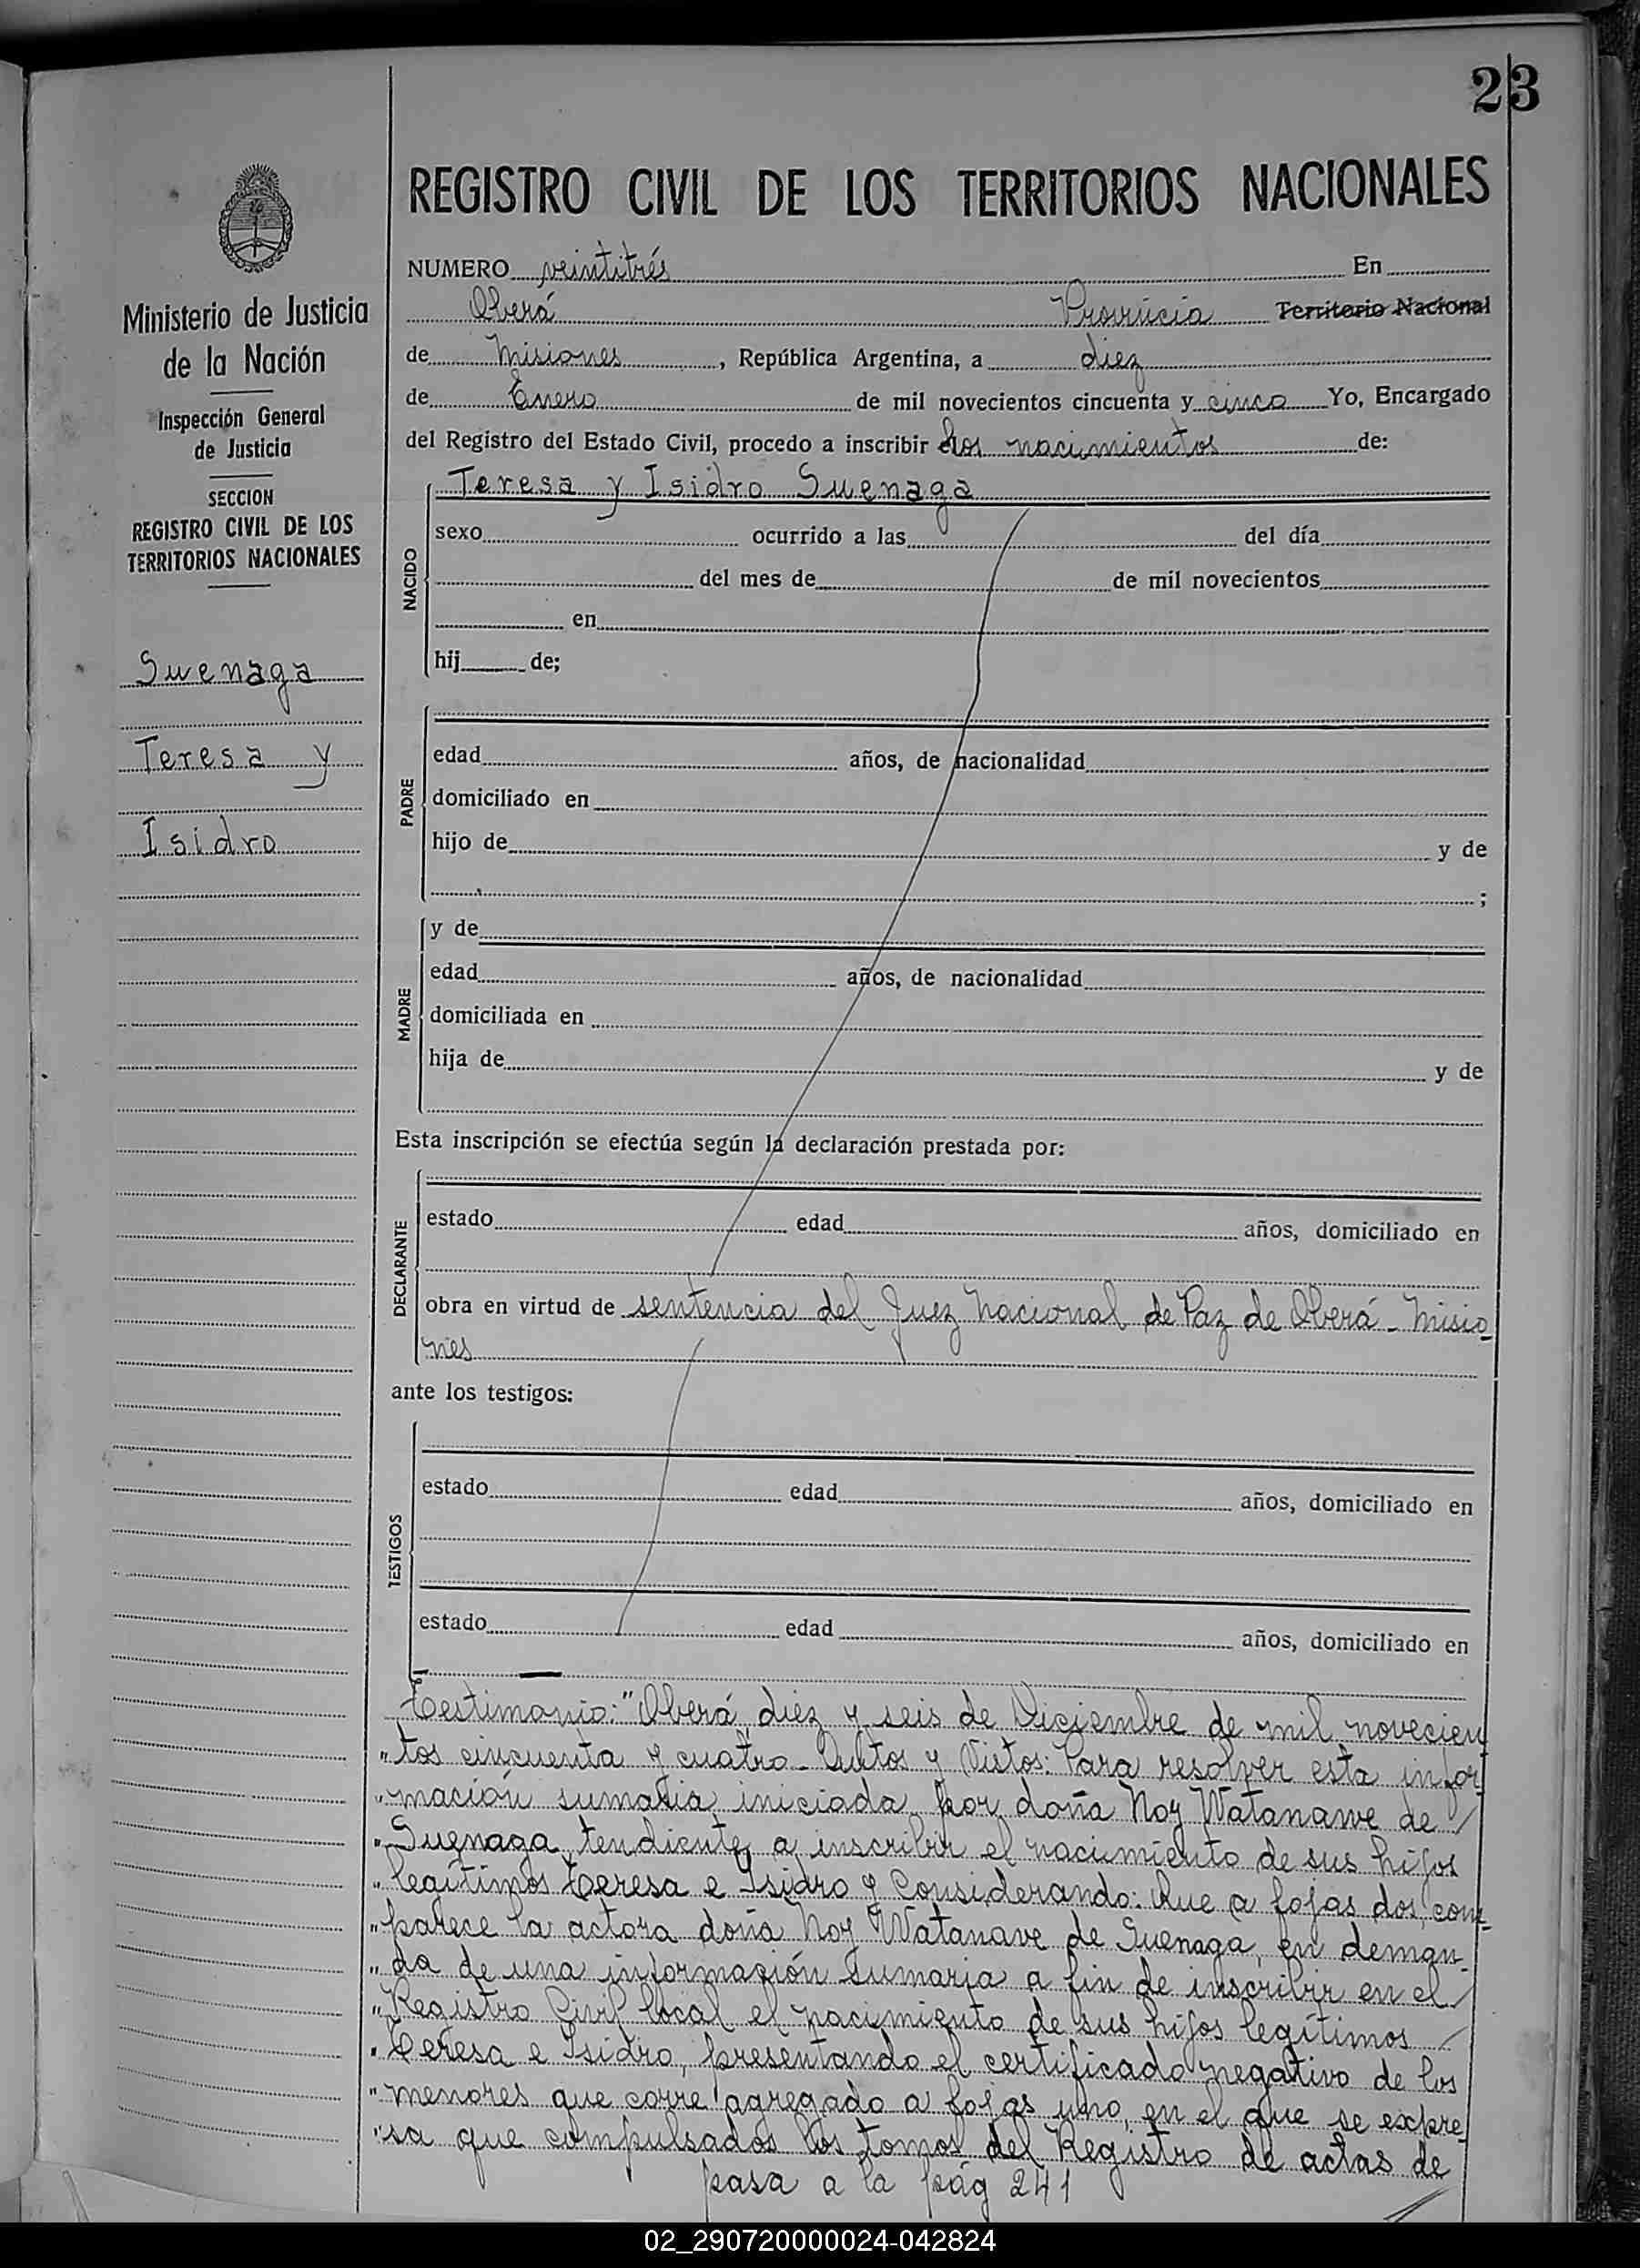 23
REGISTRO CIVIL DE LOS TERRITORIOS NACIONALES
Ministerio de Justicia
de la Nación
Inspección General
de Justicia
SECCION
REGISTRO CIVIL DE LOS
TERRITORIOS NACIONALES
Suenaga
Teresa y
Isidro
NUMERO veintitrés En
Oberá Provincia Territorio Nacional
de Misiones, República Argentina, a diez
de Enero de mil novecientos cincuenta y cinco Yo, Encargado
del Registro del Estado Civil, procedo a inscribir los nacimientos de:
Teresa y Isidro Suenaga
NACIDO
sexo ocurrido a las del día
del mes de de mil novecientos
en
hij de;
PADRE
edad años, de nacionalidad
domiciliado en
hijo de y de
;
MADRE
y de
edad años, de nacionalidad
domiciliada en
hija de y de
Esta inscripción se efectúa según la declaración prestada por:
DECLARANTE
estado edad años, domiciliado en
obra en virtud de sentencia del Juez Nacional de Paz de Oberá - Misio-
nes
ante los testigos:
TESTIGOS
estado edad años, domiciliado en
estado edad años, domiciliado en
Testimonio: "Oberá, diez y seis de Diciembre de mil novecien
"tos cincuenta y cuatro - Autos y Vistos: Para resolver esta infor-
"mación sumaria iniciada por doña Noy Watanawe de
"Suenaga, tendiente a inscribir el nacimiento de sus hijos
"legítimos Teresa e Isidro y Considerando: Que a fojas dos com-
"parece la actora doña Noy Watanave de Suenaga, en deman-
"da de una información sumaria a fin de inscribir en el
"Registro Civil local el nacimiento de sus hijos legítimos
"Teresa e Isidro, presentando el certificado negativo de los
"menores que corre agregado a fojas uno, en el que se expre-
"sa que compulsados los tomos del Registro de actas de
pasa a la pág 241
02_290720000024-042824